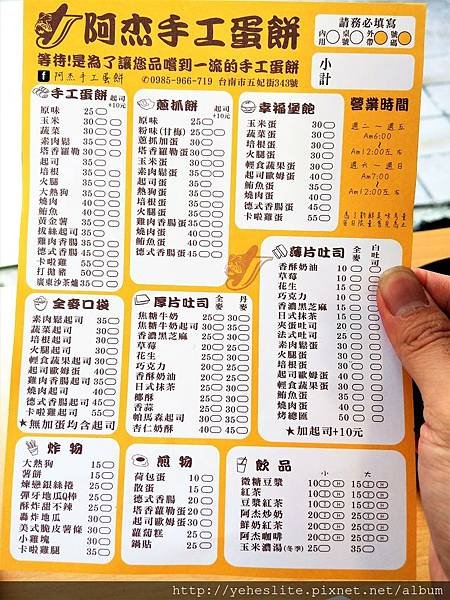 阿杰手工蛋餅
等待!是為了讓您品嚐到一流的手工蛋餅
f 阿杰手工蛋餅 ✆0985-966-719 台南市五妃街343號
請務必填寫
內用 桌號 外帶 號碼
小計
營業時間
週二～週五
Am6:00
～
Am12:00左右
週六～週日
Am7:00
～
Am12:00左右
手工蛋餅 起司+10元
原味 25
玉米 30
蔬菜 30
素肉鬆 35
塔香蘿勒 30
起司 35
培根 35
火腿 35
大熱狗 35
燒肉 40
鮪魚 40
黃金薯 35
拔絲起司 35
雞肉香腸 35
德式香腸 35
卡啦雞 55
打拋豬 50
廣東沙茶爐 35
蔥抓餅 起司+10元
原味 25
粉味(甘梅) 25
蔥抓加蛋 30
塔香蘿勒蛋 30
玉米蛋 35
素肉鬆蛋 35
起司蛋 35
熱狗蛋 35
培根蛋 35
火腿蛋 35
德式香腸蛋 35
雞肉香腸蛋 35
鮪魚蛋 40
燒肉蛋 40
幸福堡飽 起司+10元
玉米蛋 30
蔬菜蛋 30
培根蛋 30
火腿蛋 30
輕食蔬果蛋 30
起司歐姆蛋 30
鮪魚蛋 35
燒肉蛋 35
德式香腸蛋 35
卡啦雞蛋 50
全麥口袋
素肉鬆起司 35
蔬菜起司 35
培根起司 35
火腿起司 35
輕食蔬果起司 35
鮪魚起司 40
燒肉起司 40
雞肉香腸起司 40
德式香腸起司 45
卡啦雞起司 55
★無加蛋均含起司
厚片吐司 全麥 丹麥
焦糖牛奶 25 30
焦糖牛奶起司 30 35
香濃黑芝麻 25 30
草莓 20 25
花生 20 25
巧克力 20 25
香酥奶油 20 25
日式抹茶 20 25
椰酥 25 30
香蒜 25 30
帕馬森起司 30 35
杏仁奶酥 40 45
薄片吐司 全麥 白吐司
香酥奶油 10
草莓 10
花生 15
巧克力 15
香濃黑芝麻 15
日式抹茶 15
夾蛋吐司
法式吐司
素肉鬆蛋
火腿蛋
培根蛋
起司歐姆蛋
輕食蔬果蛋
鮪魚蛋
燒肉蛋
烤總匯
★加起司+10元
炸物
大熱狗 15
薯餅 15
煉戀銀絲捲 25
彈牙地瓜QQ棒 25
酥炸甜不辣 25
轟炸地瓜 30
美式脆皮薯條 30
小雞塊 30
卡啦雞腿 35
煎物
荷包蛋 10
散蛋 15
德式香腸 20
塔香蘿勒蛋 20
起司歐姆蛋 20
蘿蔔糕 25
鍋貼 25
飲品
小 大
微糖豆漿
紅茶
豆漿紅茶
阿杰炒奶
鮮奶紅茶
阿杰咖啡
玉米濃湯(冬季) 25 35
http://yeheslite.pixnet.net/album